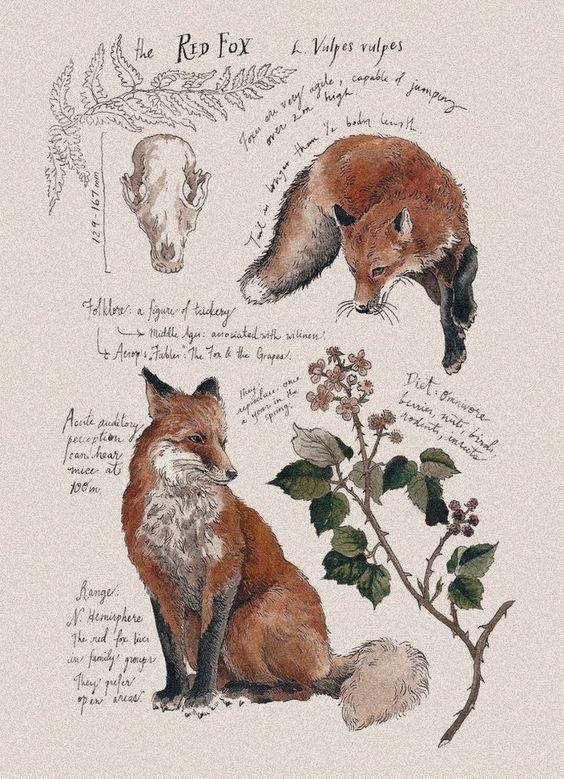 the RED FOX L. Vulpes vulpes
Foxes are very agile, capable of jumping
over 2m high.
Tail is longer than ½ body length
129-167 mm
Folklore: a figure of trickery
Middle Ages: associated with wiliness
Aesop's "Fables": The Fox & the Grapes.
They
reproduce once
a year in the
spring.
Diet: Omnivore
berries, nuts, birds,
rodents, insects
Acute auditory
perception
(can hear
mice at
100m
Range:
N. Hemisphere
The red fox lives
in family groups
They prefer
open areas.